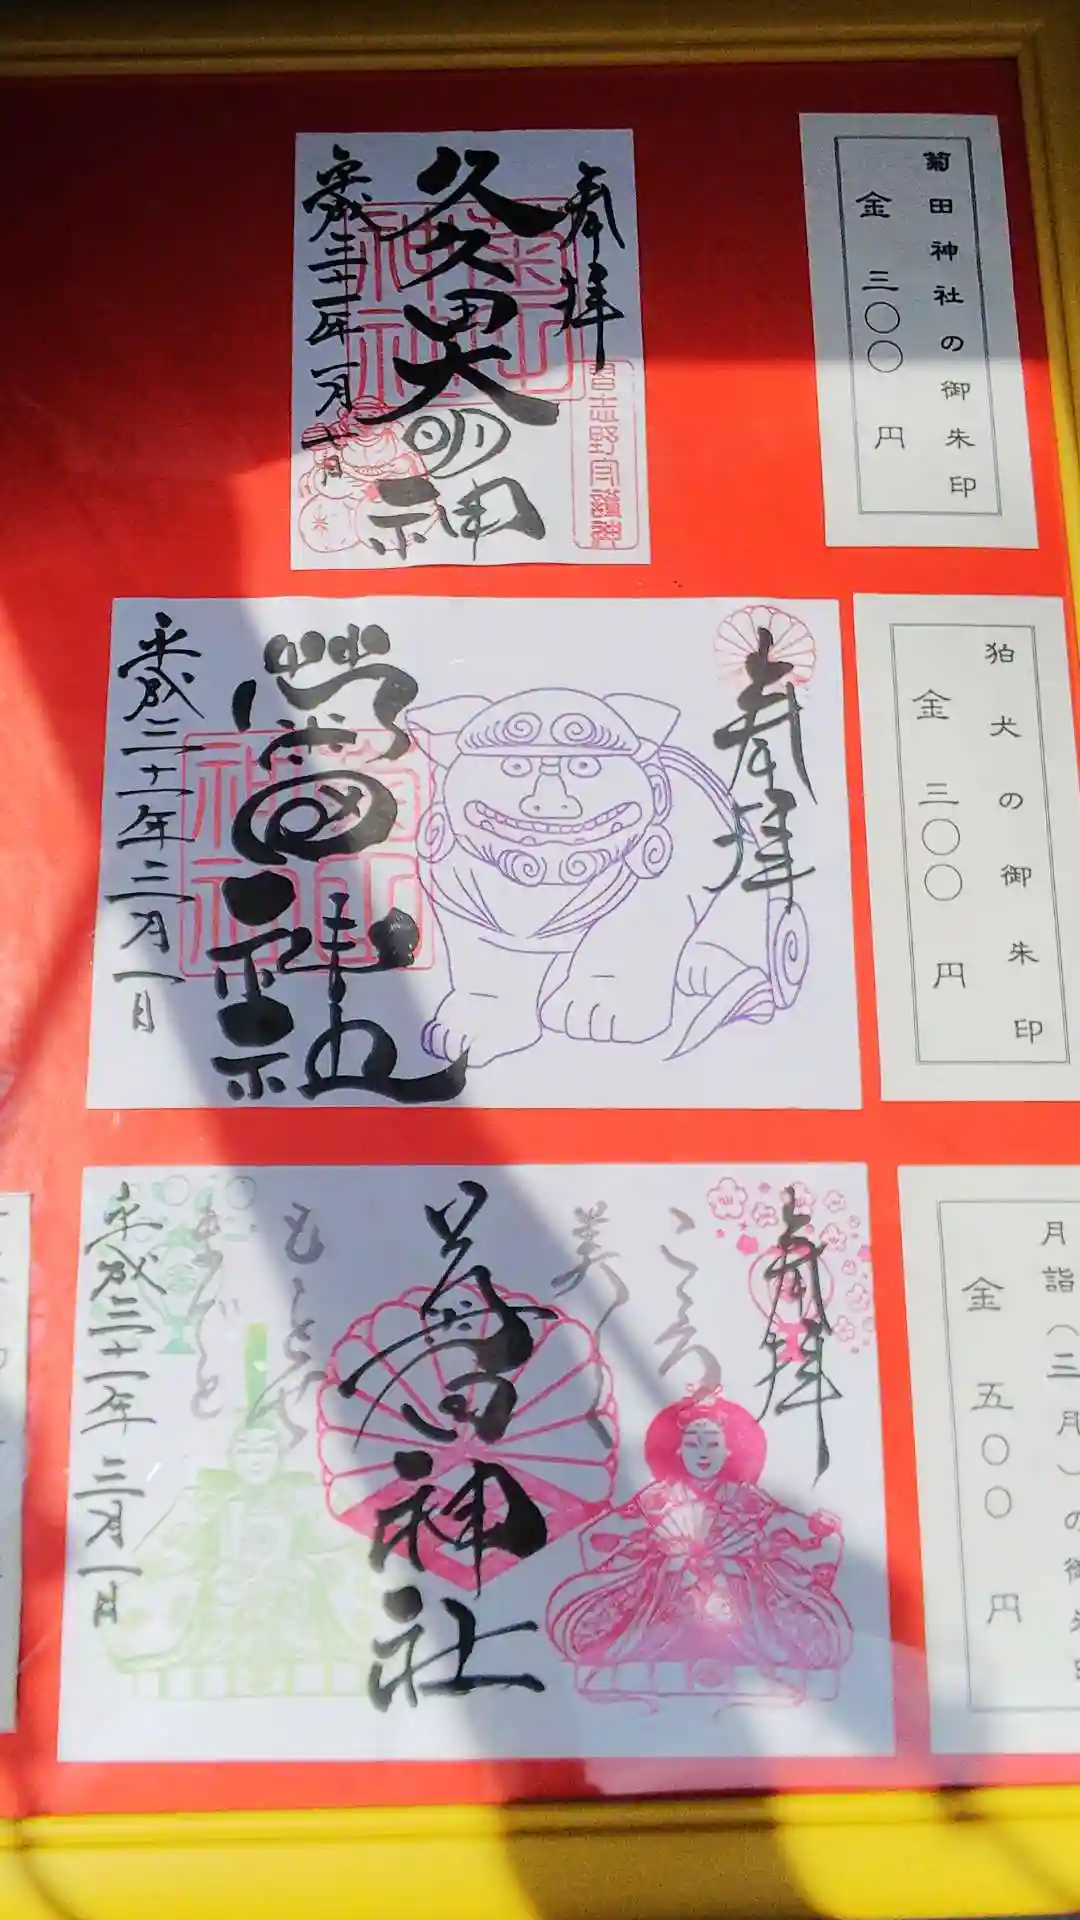 菊田神社の御朱印
金 三〇〇 円
奉拝
久久田大明神
平成三十一年一月十日
菊田神社
習志野
狛犬の御朱印
金 三〇〇 円
奉拝
菊田神社
平成三十一年三月一日
月詣(三月)の御朱印
金 五〇〇 円
奉拝
こゝろ
美しく
菊田神社
もゝとせ
までと
平成三十一年 三月一日